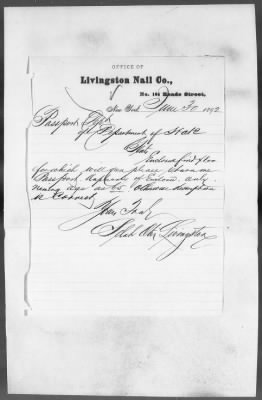 OFFICE OF
Livingston Nail Co.,
No. 104 Reade Street,
New York June 30 1892
Passport Clerk
of Department of State
Sir
Enclosed find
for which will you please return me
Passport duplicate of Enclosed only
making age as 65 otherwise description
is Correct
Yours Truly
Livingston